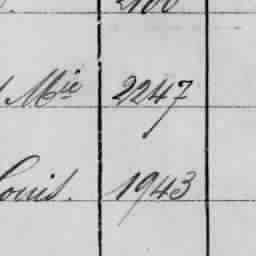 Mie 2247
Louis. 1943